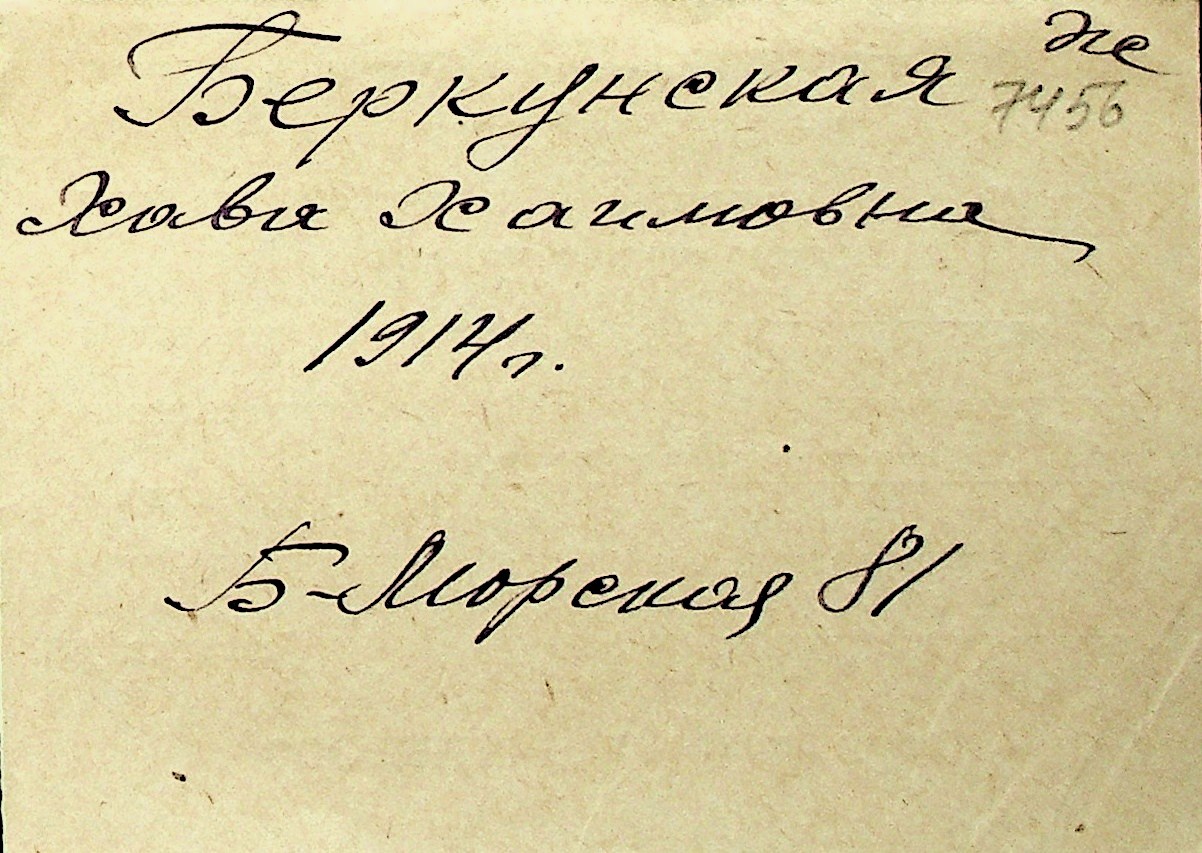 Беркунская
же
7456
Хава Хаимовна
1914 г.
Б-Морская 81